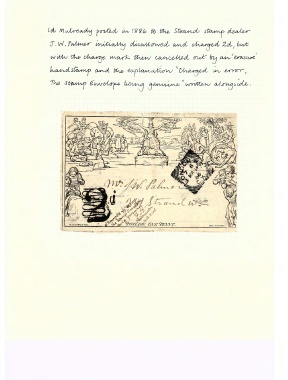 1d Mulready posted in 1886 to the Strand stamp dealer
J.W. Palmer initially disallowed and charged 2d, but
with the charge mark then cancelled out by an 'erasure'
handstamp and the explanation "Charged in error,
The stamp Envelope being genuine" written alongside.
Mr J.W. Palmer
Strand